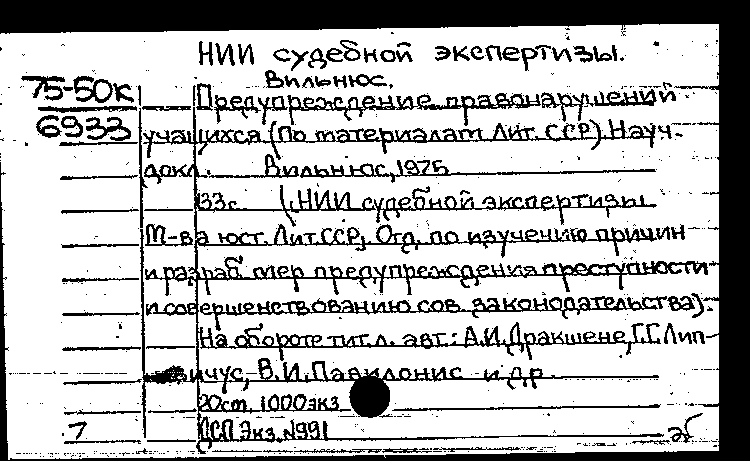 НИИ судебной экспертизы.
Вильнюс.
75-50к
6933
Предупреждение правонарушений
учащихся (По материалам Лит. ССР). Науч.
докл. Вильнюс, 1975
33с. (НИИ судебной экспертизы
М-ва юст. Лит.ССР, Отд. по изучению причин
и разраб. мер предупреждения преступности
и совершенствованию сов. законодательства).
На обороте тит. л. авт.: А.И. Дракшене, Г.Г. Лип-
ичус, В.И. Павилонис и др.
20см. 1000экз
ДСП Экз. №991
7